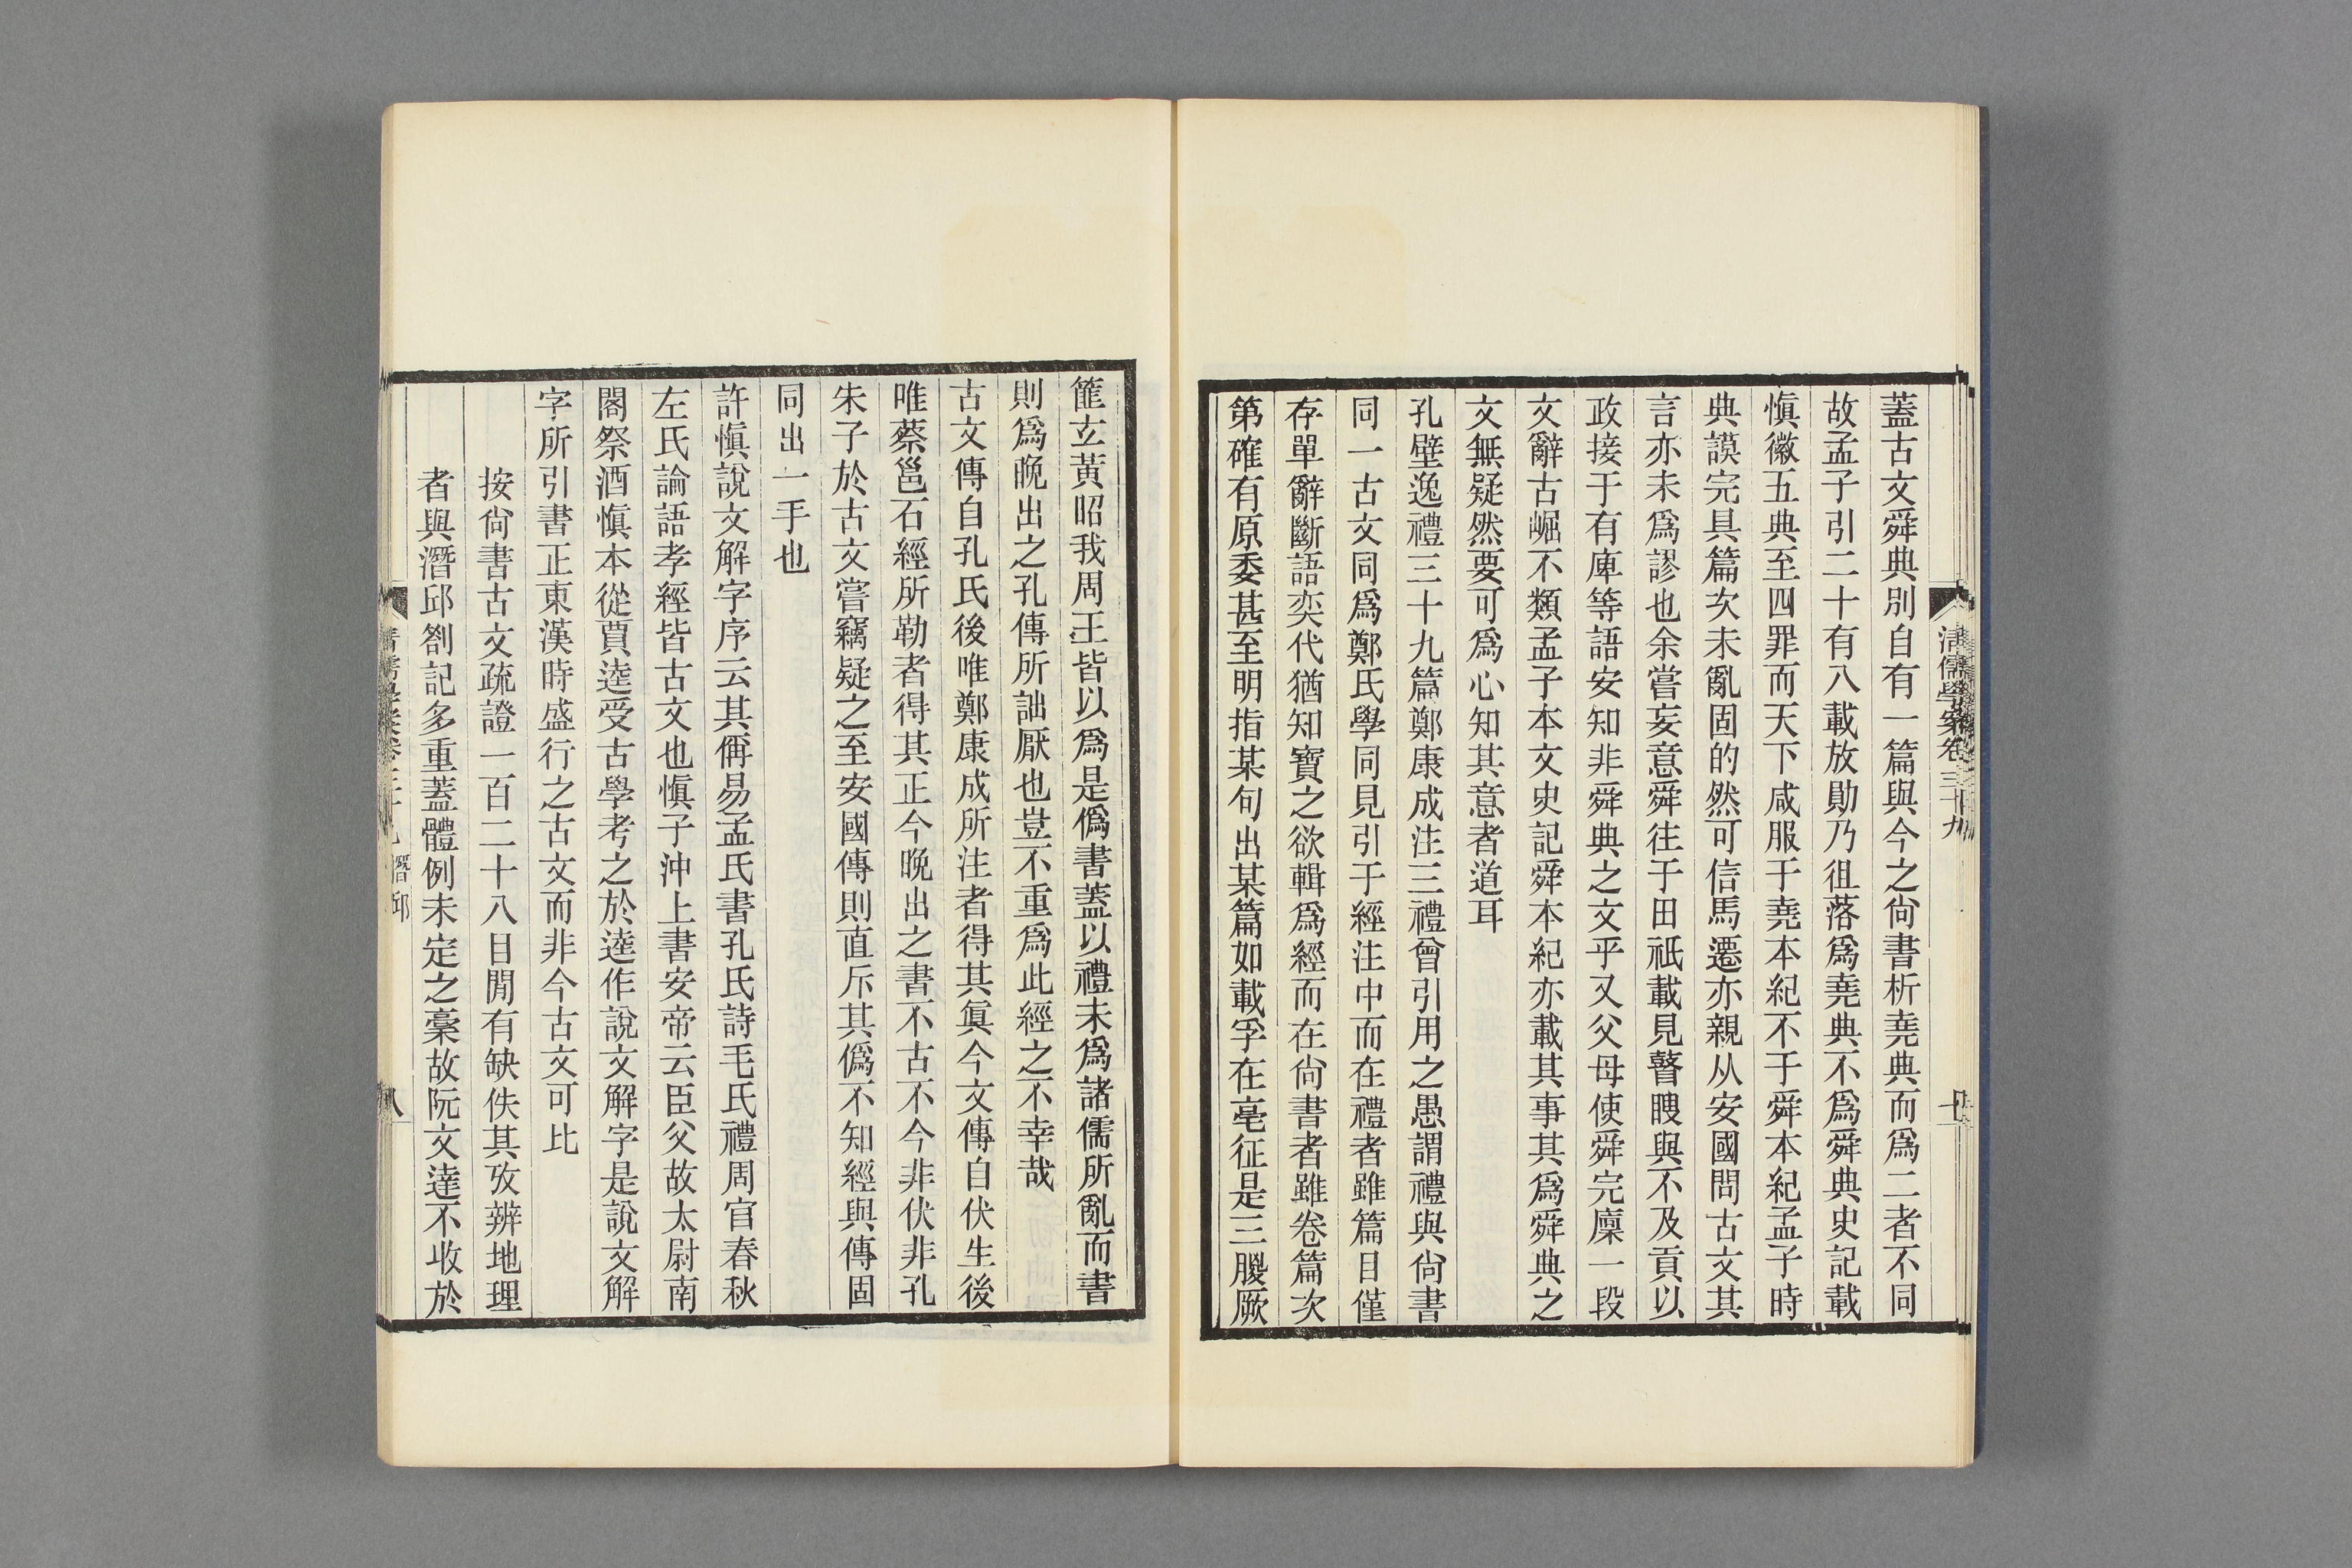 蓋古文舜典別自有一篇與今之尙書析堯典而爲二者不同
故孟子引二十有八載放勛乃徂落爲堯典不爲舜典史記載
愼徽五典至四罪而天下咸服于堯本紀不于舜本紀孟子時
典謨完具篇次未亂固的然可信馬遷亦親从安國問古文其
言亦未爲謬也余嘗妄意舜往于田祇載見瞽瞍與不及貢以
政接于有庳等語安知非舜典之文乎又父母使舜完廩一段
文辭古崛不類孟子本文史記舜本紀亦載其事其爲舜典之
文無疑然要可爲心知其意者道耳
孔壁逸禮三十九篇鄭康成注三禮曾引用之愚謂禮與尙書
同一古文同爲鄭氏學同見引于經注中而在禮者雖篇目僅
存單辭斷語奕代猶知寶之欲輯爲經而在尙書者雖卷篇次
第確有原委甚至明指某句出某篇如載孚在亳征是三朡厥
篚玄黃昭我周王皆以爲是僞書蓋以禮未爲諸儒所亂而書
則爲晚出之孔傳所詘厭也豈不重爲此經之不幸哉
古文傳自孔氏後唯鄭康成所注者得其眞今文傳自伏生後
唯蔡邕石經所勒者得其正今晚出之書不古不今非伏非孔
朱子於古文嘗竊疑之至安國傳則直斥其僞不知經與傳固
同出一手也
許愼說文解字序云其偁易孟氏書孔氏詩毛氏禮周官春秋
左氏論語孝經皆古文也愼子沖上書安帝云臣父故太尉南
閣祭酒愼本從賈逵受古學考之於逵作說文解字是說文解
字所引書正東漢時盛行之古文而非今古文可比
按尙書古文疏證一百二十八目閒有缺佚其攷辨地理
者與潛邱劄記多重蓋體例未定之稾故阮文達不收於
清儒學案卷三十九
潛邱
八